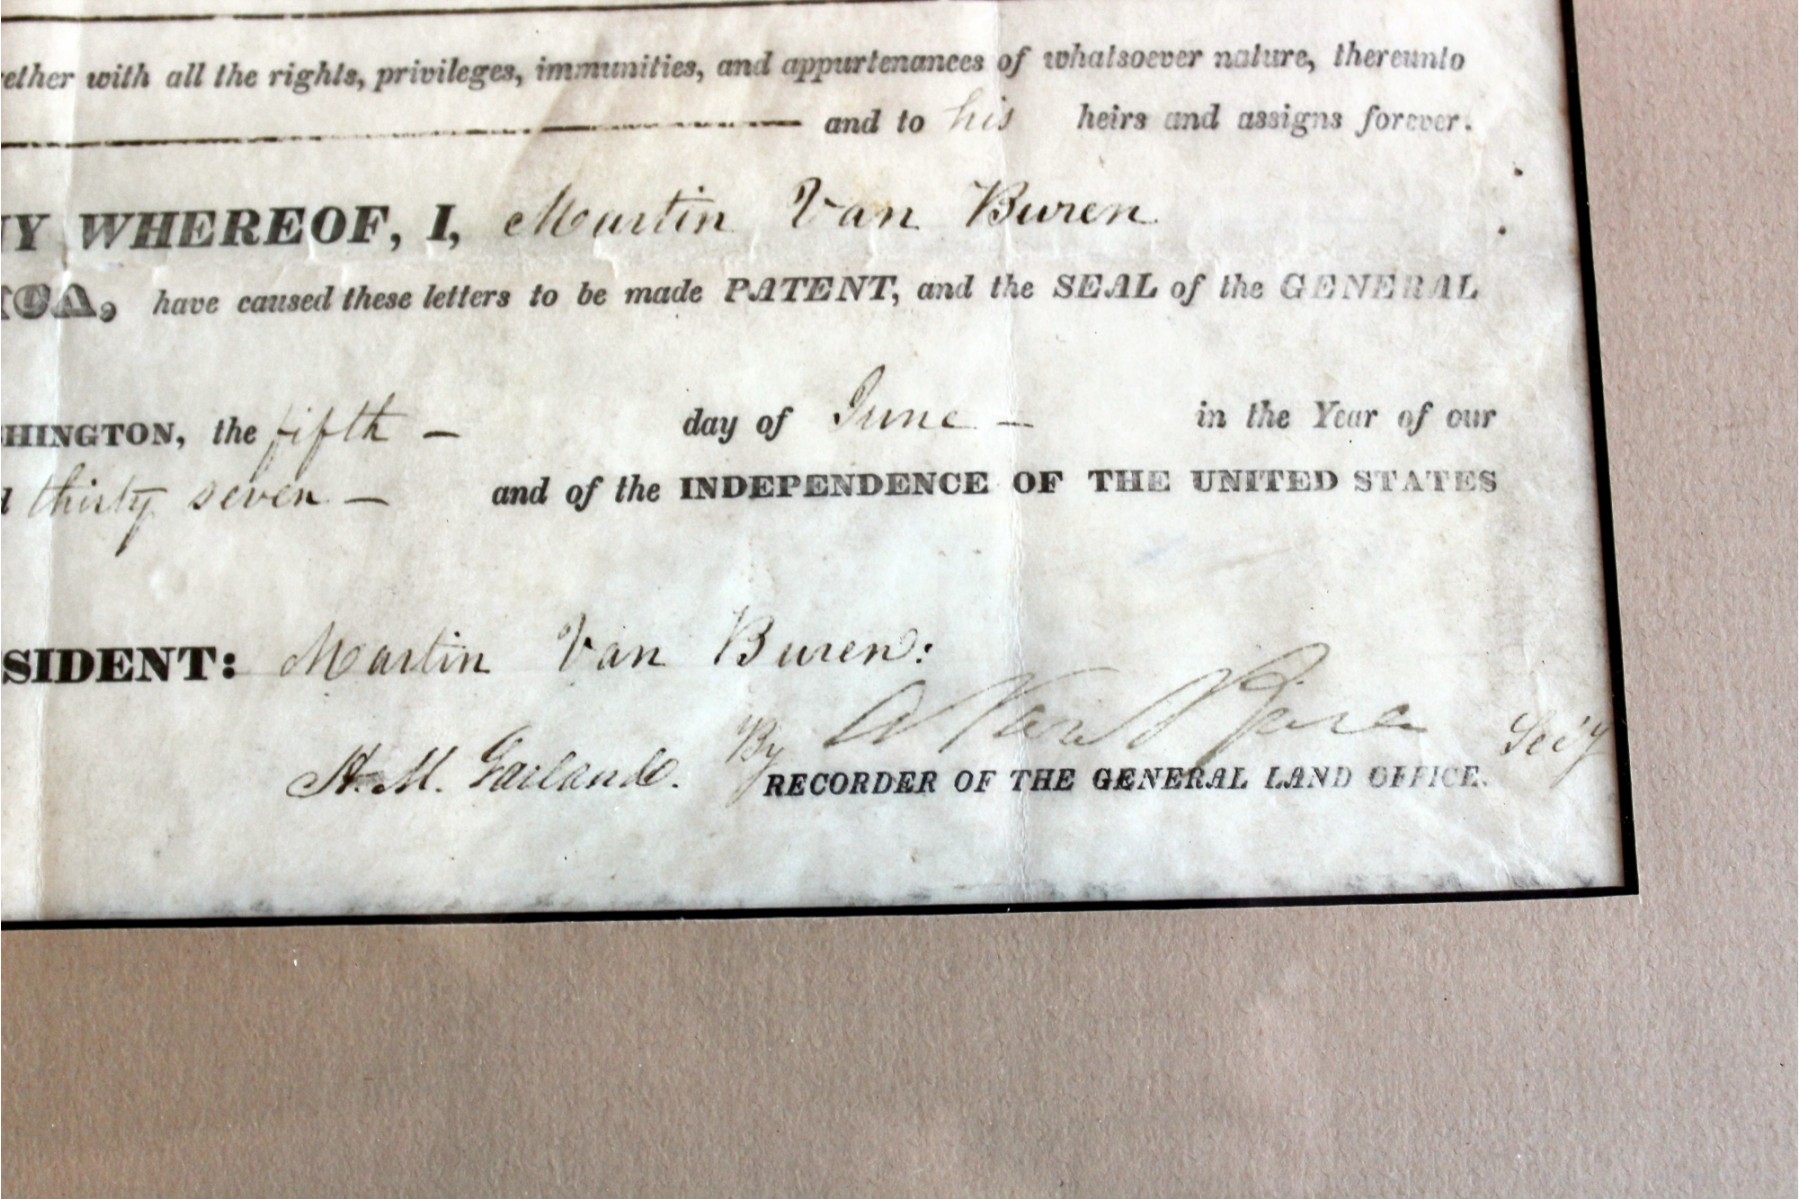 ether with all the rights, privileges, immunities, and appurtenances of whatsoever nature, thereunto
and to his heirs and assigns forever.
NY WHEREOF, I, Martin Van Buren
ICA, have caused these letters to be made PATENT, and the SEAL of the GENERAL
HINGTON, the fifth — day of June — in the Year of our
d thirty seven — and of the INDEPENDENCE OF THE UNITED STATES
SIDENT: Martin Van Buren:
By A Van Buren Sec'y
H. M. Garland. RECORDER OF THE GENERAL LAND OFFICE.